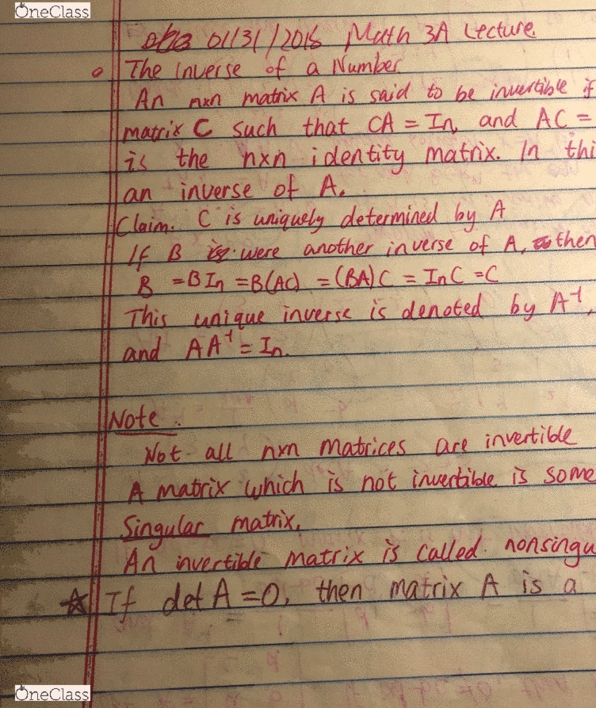 OneClass
01/31/2016 Math 3A Lecture
The Inverse of a Number
An nxn matrix A is said to be invertible if
matrix C such that CA = In, and AC =
is the nxn identity matrix. In thi
an inverse of A.
Claim: C is uniquely determined by A
If B were another inverse of A, then
B = BIn = B(AC) = (BA)C = InC = C
This unique inverse is denoted by A⁻¹,
and AA⁻¹ = In.
Note:
Not all nxn matrices are invertible
A matrix which is not invertible is some
Singular matrix.
An invertible matrix is called nonsingu
☆ If det A = 0, then matrix A is a
OneClass